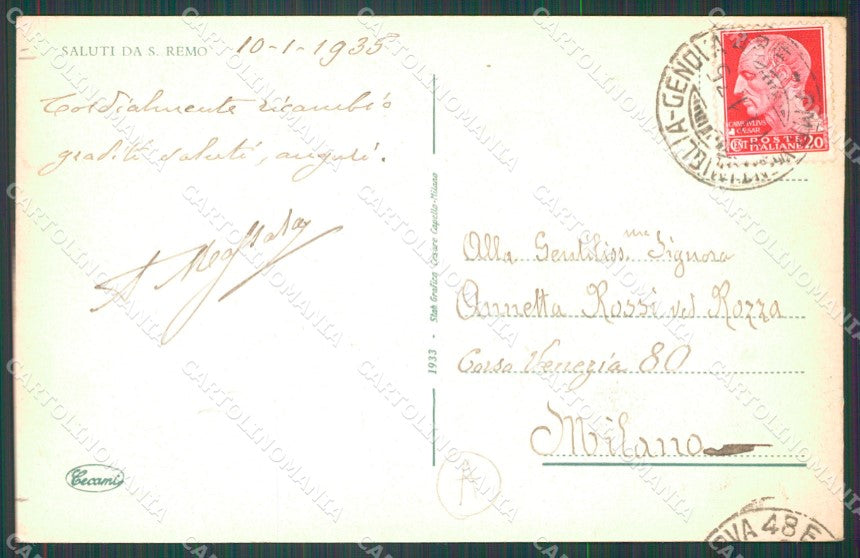 SALUTI DA S. REMO 10-1-1935
Cordialmente ricambio
graditi saluti, auguri.
1933 - Stab. Grafico Cesare Capello - Milano
Cecami
VENTIMIGLIA-GENOVA
CAIUS IULIUS
CAESAR
CENT POSTE 20
ITALIANE
Alla Gentiliss.ma Signora
Annetta Rossi ved Rozza
Corso Venezia 80
Milano
OVA 48 F
CARTOLINOMANIA